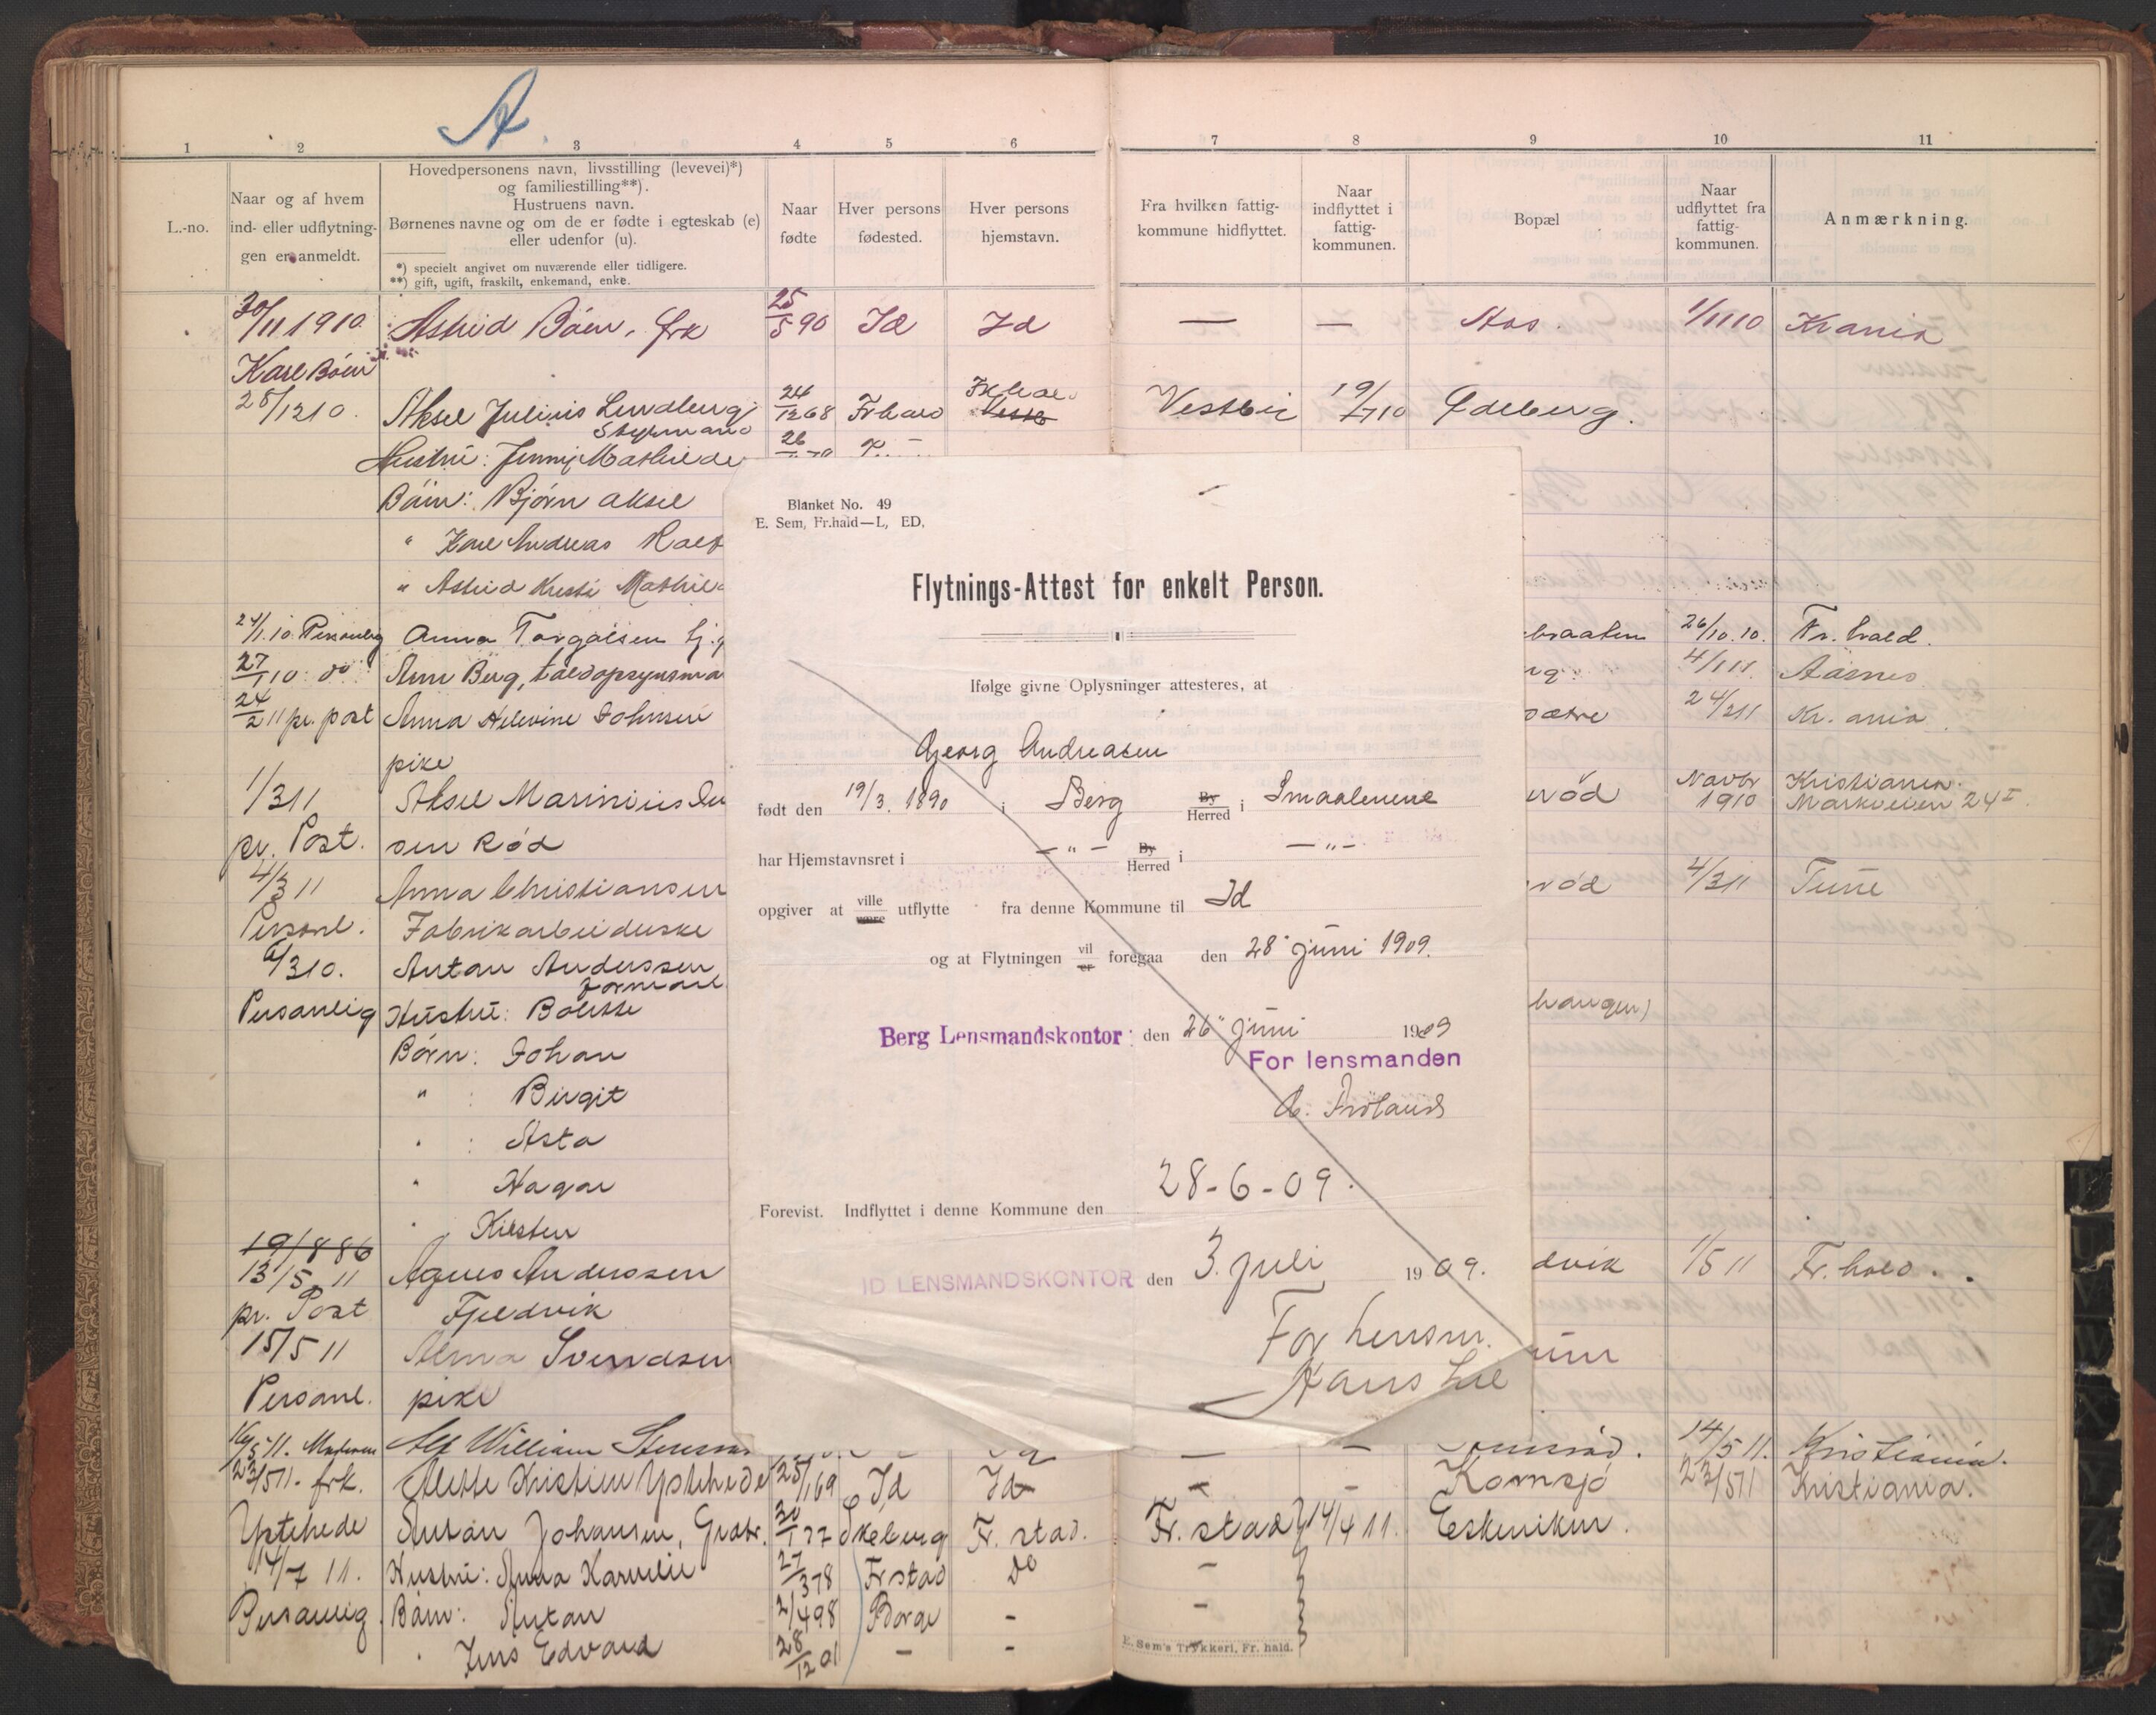 A.
1 2 3 4 5 6 7 8 9 10 11
L.-no.
Naar og af hvem
ind- eller udflytnin-
gen er anmeldt.
Hovedpersonens navn, livsstilling (levevei)*)
og familiestilling**).
Hustruens navn.
Børnenes navne og om de er fødte i egteskab (e)
eller udenfor (u).
*) specielt angivet om nuværende eller tidligere.
**) gift, ugift, fraskilt, enkemand, enke.
Naar
fødte
Hver persons
fødested.
Hver persons
hjemstavn.
Fra hvilken fattig-
kommune hidflyttet.
Naar
indflyttet i
fattig-
kommunen.
Bopæl
Naar
udflyttet fra
fattig-
kommunen.
Anmærkning.
30/11 1910. Astrid Böen, frk 25/5 90 Id Id — — Aas. 1/11 10 Krania
Karl Böen
28/12 10. Aksel Julius Lundberg 24/12 68 Frhald Frhald Vestbÿ 19/7 10 Edeberg.
Styrmand
Hustru: Jenny Mathilde 26
Börn: Björn Aksel
" Karl Andreas
" Astrid Kristi
24/1.10. Personlig Anna Torgalsen braaten 26/10.10. Fr. hald.
27/1 10. do Arne Berg, 4/1 11. Aasnes
24/2 11 pr. post Anna Helevine Johnsen sætre 24/2 11 Kr. ania
pike
1/3 11 Aksel Marinius röd Novbr 1910 Kristiania. Markveien 24 I.
pr. Post. sen Röd
4/3 11 Anna Christiansen röd 4/3 11 Tune
Personl. Fabrikarbeiderske
6/3 10. Anton Anderssen
formand
Personlig Hustru: Bolette haugen)
Börn: Johan
" : Birgit
. : Asta
" Hagar
" Kirsten
19/8 86
13/5 11 Agnes Anderssen dvik 1/5 11 Fr. hald.
pr. Post Fjeldvik
15/5 11 Alma Svendsen
Personl. pike
16/5 11. Alf William 14/5 11. Kristiania.
23/5 11. frk. Alette Kristine Ystehede 25/1 69 Id Id - - Kornsjø 23/5 11 Kristiania.
Ystehede Anton Johansen, 30/1 77 Skeberg Fr. stad. Fr. stad 14/4 11. Eskeviken.
14/7 11. Hustru: Anna Karoline 27/3 78 Frstad do -
Personlig. Börn: Anton 2/4 98 Borge - -
" Jens Edvard 28/12 01 - -
E. Sem's Trykkeri, Fr. hald.
Blanket No. 49
E. Sem, Fr.hald—L, ED,
Flytnings-Attest for enkelt Person.
Ifølge givne Oplysninger attesteres, at
Georg Andreasen
født den 19/3. 1890 i Berg By Herred i Smaalenene
har Hjemstavnsret i — " — By Herred i — " —
opgiver at ville være utflytte fra denne Kommune til Id
og at Flytningen vil er foregaa den 28' juni 1909.
Berg Lensmandskontor den 26" juni 1909
For lensmanden
Forevist. Indflyttet i denne Kommune den 28-6-09.
ID LENSMANDSKONTOR den 3. juli 1909.
For lensm.
Hans Lie